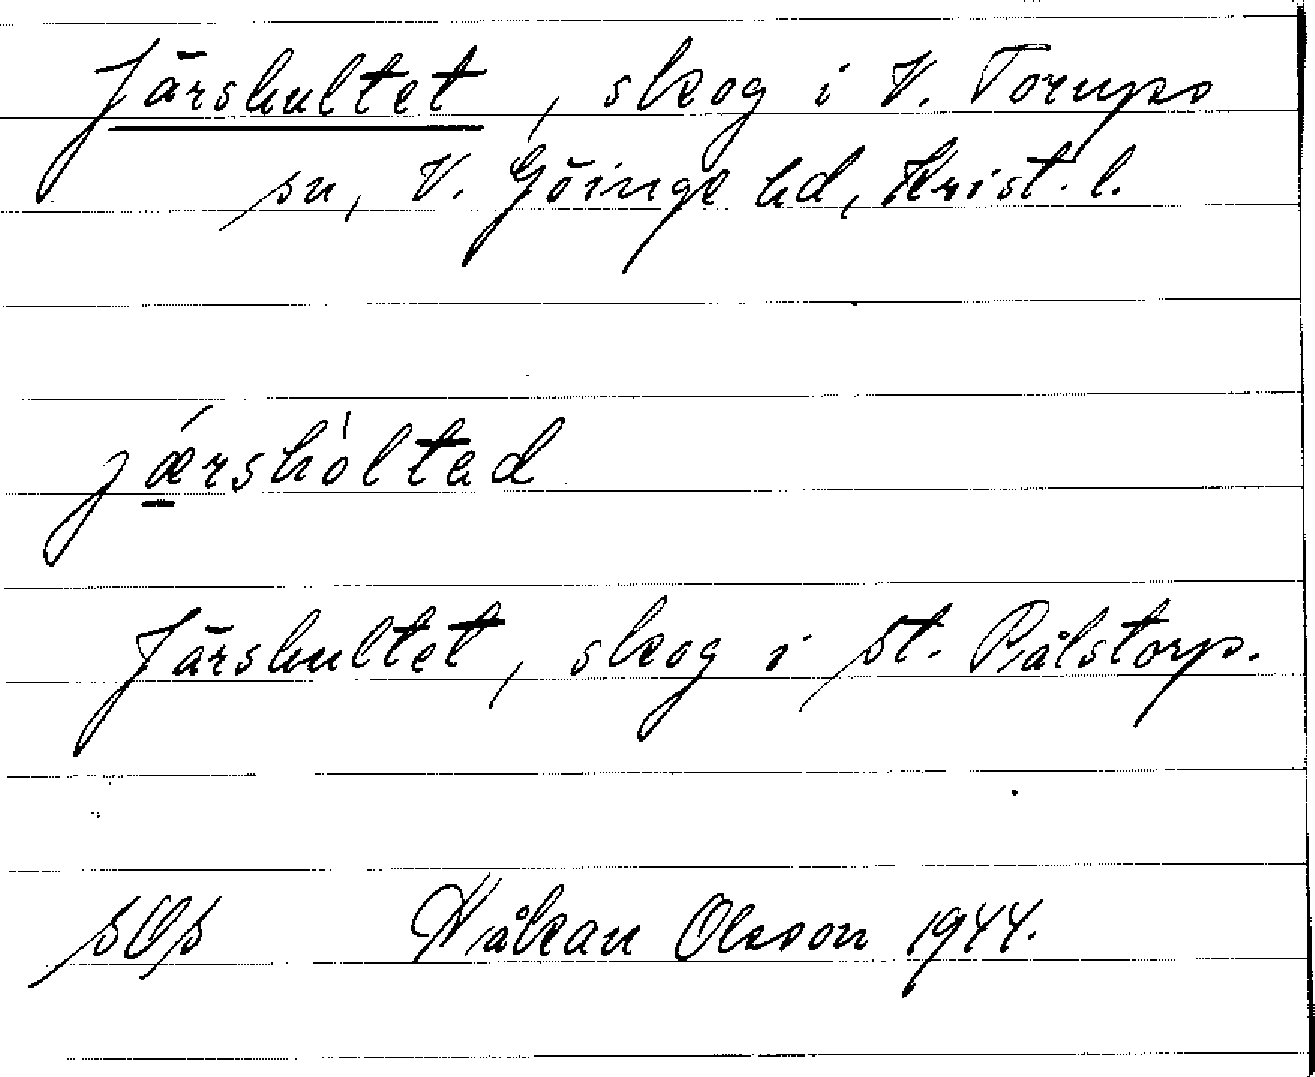 Järshultet, skog i V. Torups
sn, V. Göinge hd, Krist. l.
jǽ̲rshòltad
Järshultet, skog i St. Pålstorp.
Håkan Olsson 1944.